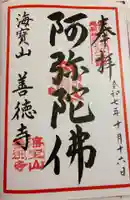 奉拝
令和七年十月十六日
阿弥陀佛
海宝山
善徳寺